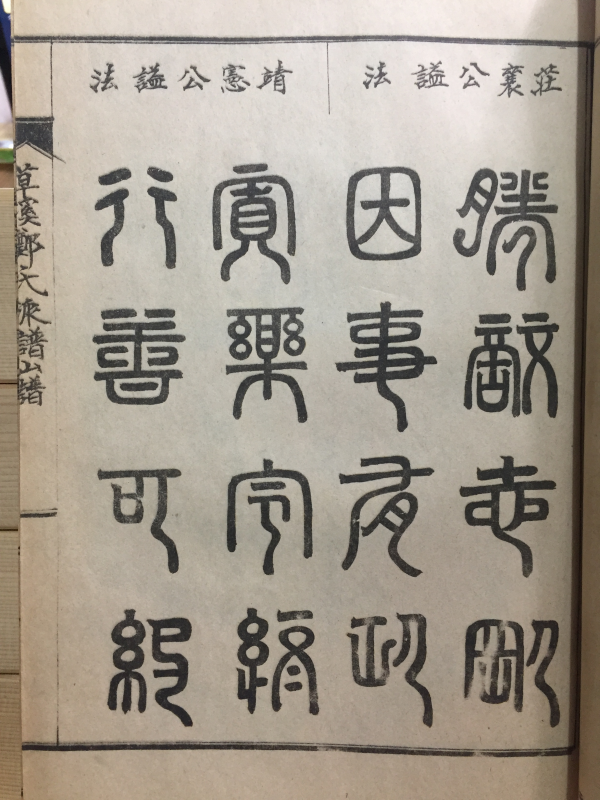 莊襄公謚法
靖憲公謚法
勝敵志剛
因事有功
寬樂令終
行善可紀
草溪鄭氏派譜山譜